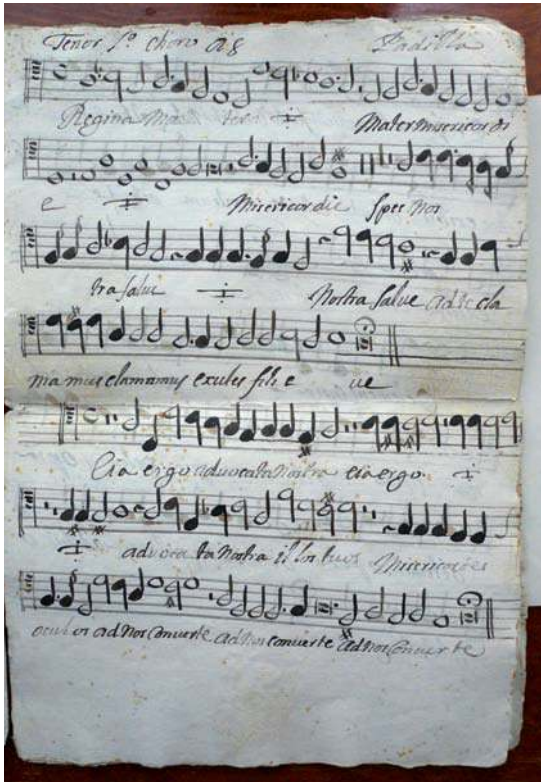 Tenor 1º choro a 8 Padilla
Regina Ma ter Mater misericordi
e Misericordie spes Nos
tra salue Nostra salue ad te cla
mamus clamamus exules filie ue
Eia ergo aduocata nostra eia ergo
aduocata nostra illos tuos Misericordes
oculos ad Nos conuerte ad Nos conuerte ad Nos Conuerte